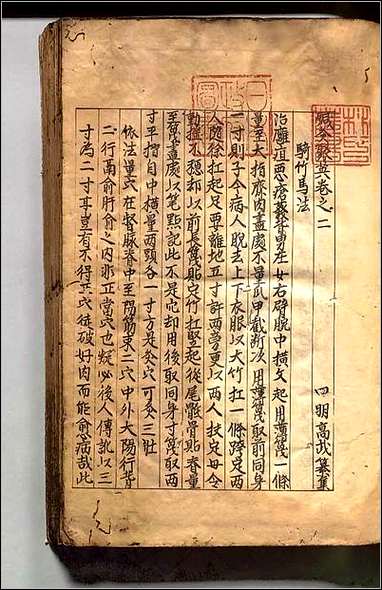 鍼灸聚英卷之二
四明高武纂集
騎竹馬法
治癰疽惡瘡發背男左女右臂腕中橫文起用薄篾一條
量至大指齊肉盡處不量爪甲截斷次用薄篾取前同身
一寸則子令病人脫去上下衣服以大竹杠一條跨足兩
人隨徐扛起足要離地五寸許兩旁更以兩人扶定毋令
動搖不穩却以前長篾貼定竹杠豎起從尾骶骨貼脊量
至篾盡處以筆點記此不是穴却用後取同身寸篾取兩
寸平摺自中橫量兩頭各一寸方是灸穴可灸三壯
依法量穴在督脉脊中至陽筋束二穴中外大陽行背
二行鬲俞肝俞之內非正當穴也疑必後人傳訛以三
寸為二寸耳豈有不得其穴徒破好肉而能愈病哉此